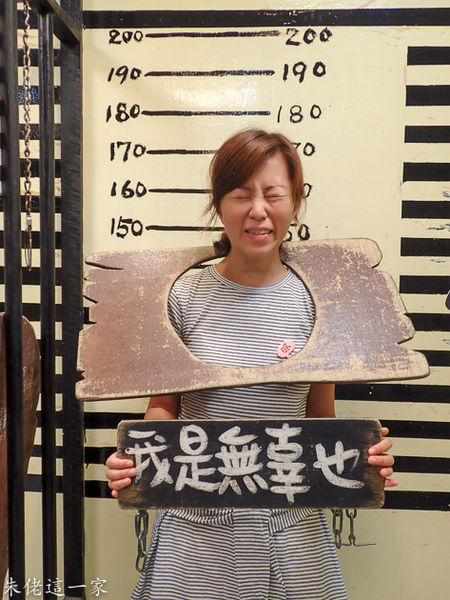 200 200
190 190
180 180
170 70
160
150 50
我是無辜也
朱佬這一家